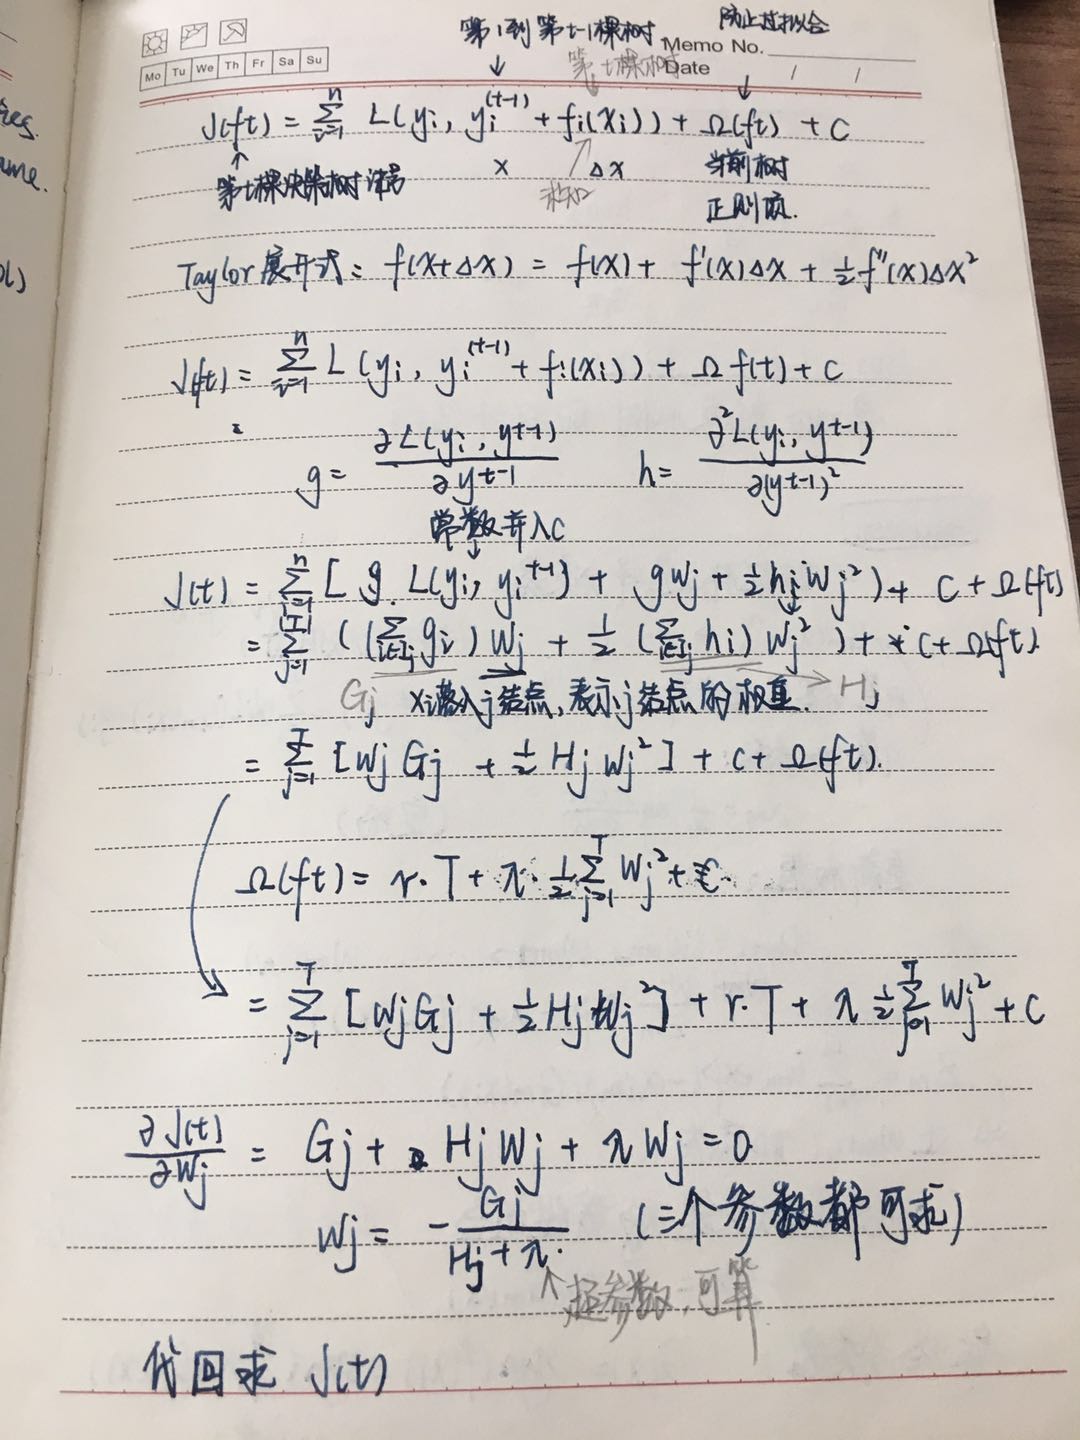 第1到第t-1棵树 防止过拟合
Memo No.
第t棵树 Date / /
Mo Tu We Th Fr Sa Su
J(ft) = Σ_{i=1}^{n} L(yi, yi^(t-1) + fi(xi)) + Ω(ft) + C
第t棵决策树 x Δx 当前树
正则项.
Taylor展开式: f(x+Δx) = f(x) + f'(x)Δx + ½f''(x)Δx²
J(ft) = Σ_{i=1}^{n} L(yi, yi^(t-1) + fi(xi)) + Ω f(t) + C
g = ∂L(yi, y^t-1) / ∂y^t-1 h = ∂²L(yi, y^t-1) / ∂(y^t-1)²
常数并入C
J(t) = Σ_{i=1}^{n} [ g. L(yi, yi^t-1) + gwj + ½hjwj² ) + C + Ω(ft)
= Σ_{j=1}^{|T|} ( (Σ_{i∈Ij} gi) wj + ½ (Σ_{i∈Ij} hi) wj² ) + C + Ω(ft).
Gj xi落入j结点,表示j结点的权重. Hj
= Σ_{j=1}^{T} [wj Gj + ½ Hj wj²] + C + Ω(ft).
Ω(ft) = r·T + λ· ½ Σ_{j=1}^{T} wj² +
= Σ_{j=1}^{T} [wjGj + ½Hjwj²] + r·T + λ ½ Σ_{j=1}^{T} wj² + C
∂J(t) / ∂wj = Gj + Hj wj + λ wj = 0
wj = - Gj / (Hj + λ). (三个参数都可求)
超参数,可算
代回求 J(t)